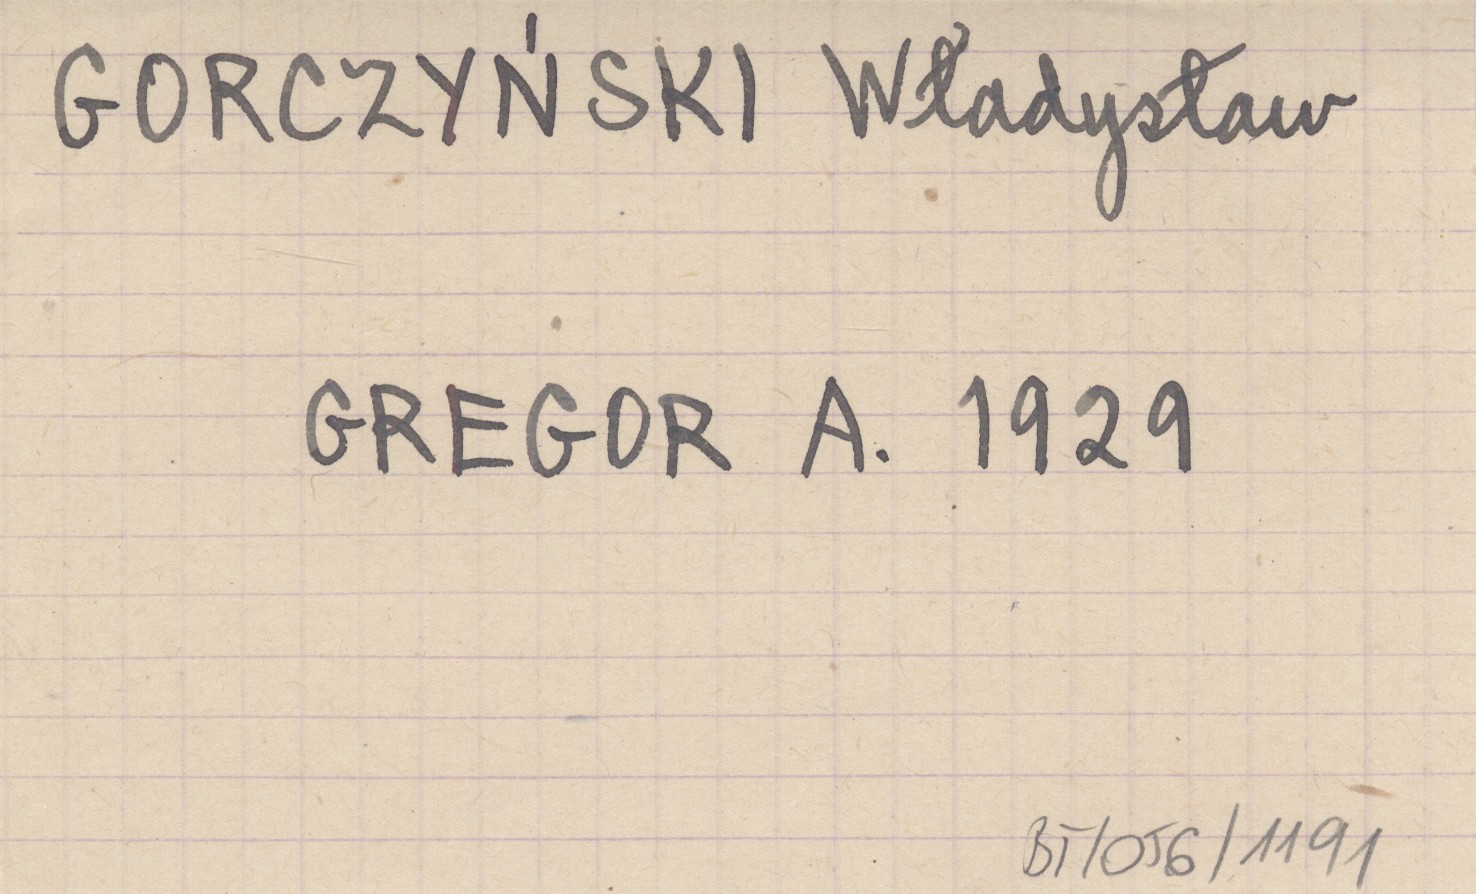 GORCZYŃSKI Władysław
GREGOR A. 1929
BT/056/1191